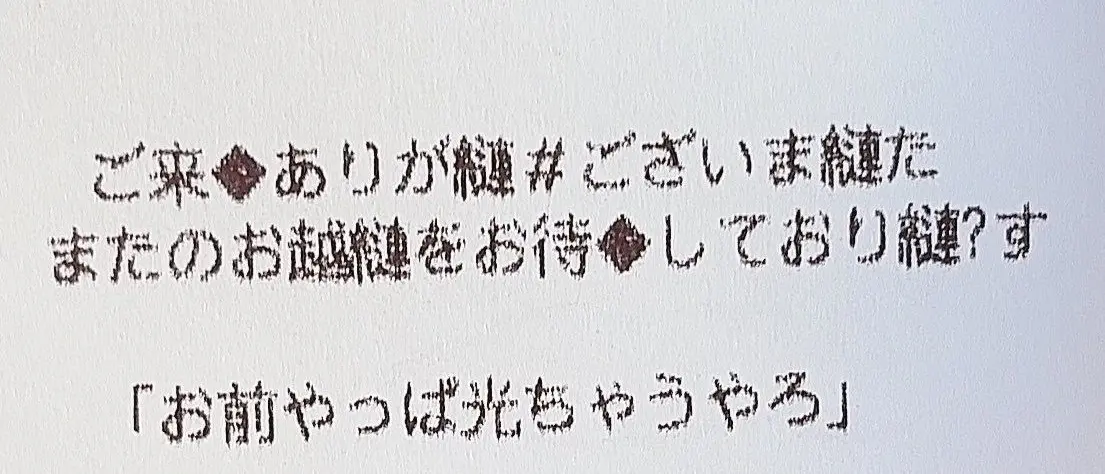 ご来◆ありが縺#ございま縺た
またのお越縺をお待◆しており縺?す
「お前やっぱ光ちゃうやろ」